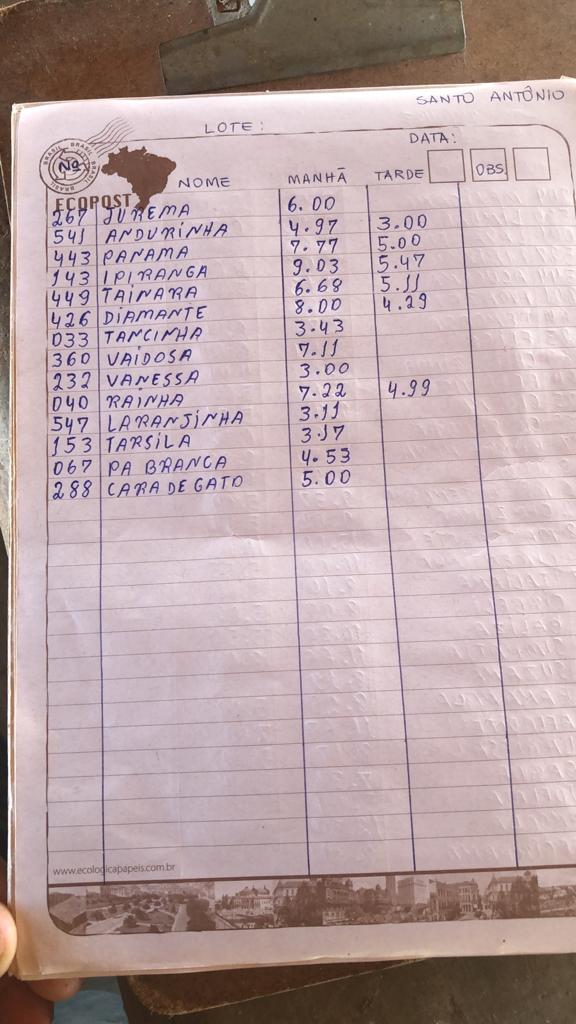 SANTO ANTÔNIO
LOTE:
DATA:
BRASIL BRASIL BRASIL
Nº NOME MANHÃ TARDE OBS
ECOPOST
267 JUREMA 6.00
541 ANDURINHA 4.97 3.00
443 PANAMA 7.77 5.00
143 IPIRANGA 9.03 5.47
449 TAINARA 6.68 5.11
426 DIAMANTE 8.00 4.29
033 TANCINHA 3.43
360 VAIDOSA 7.11
232 VANESSA 3.00
040 RAINHA 7.22 4.99
547 LARANJINHA 3.11
153 TARSILA 3.17
067 PA BRANCA 4.53
288 CARA DE GATO 5.00
www.ecologicapapeis.com.br